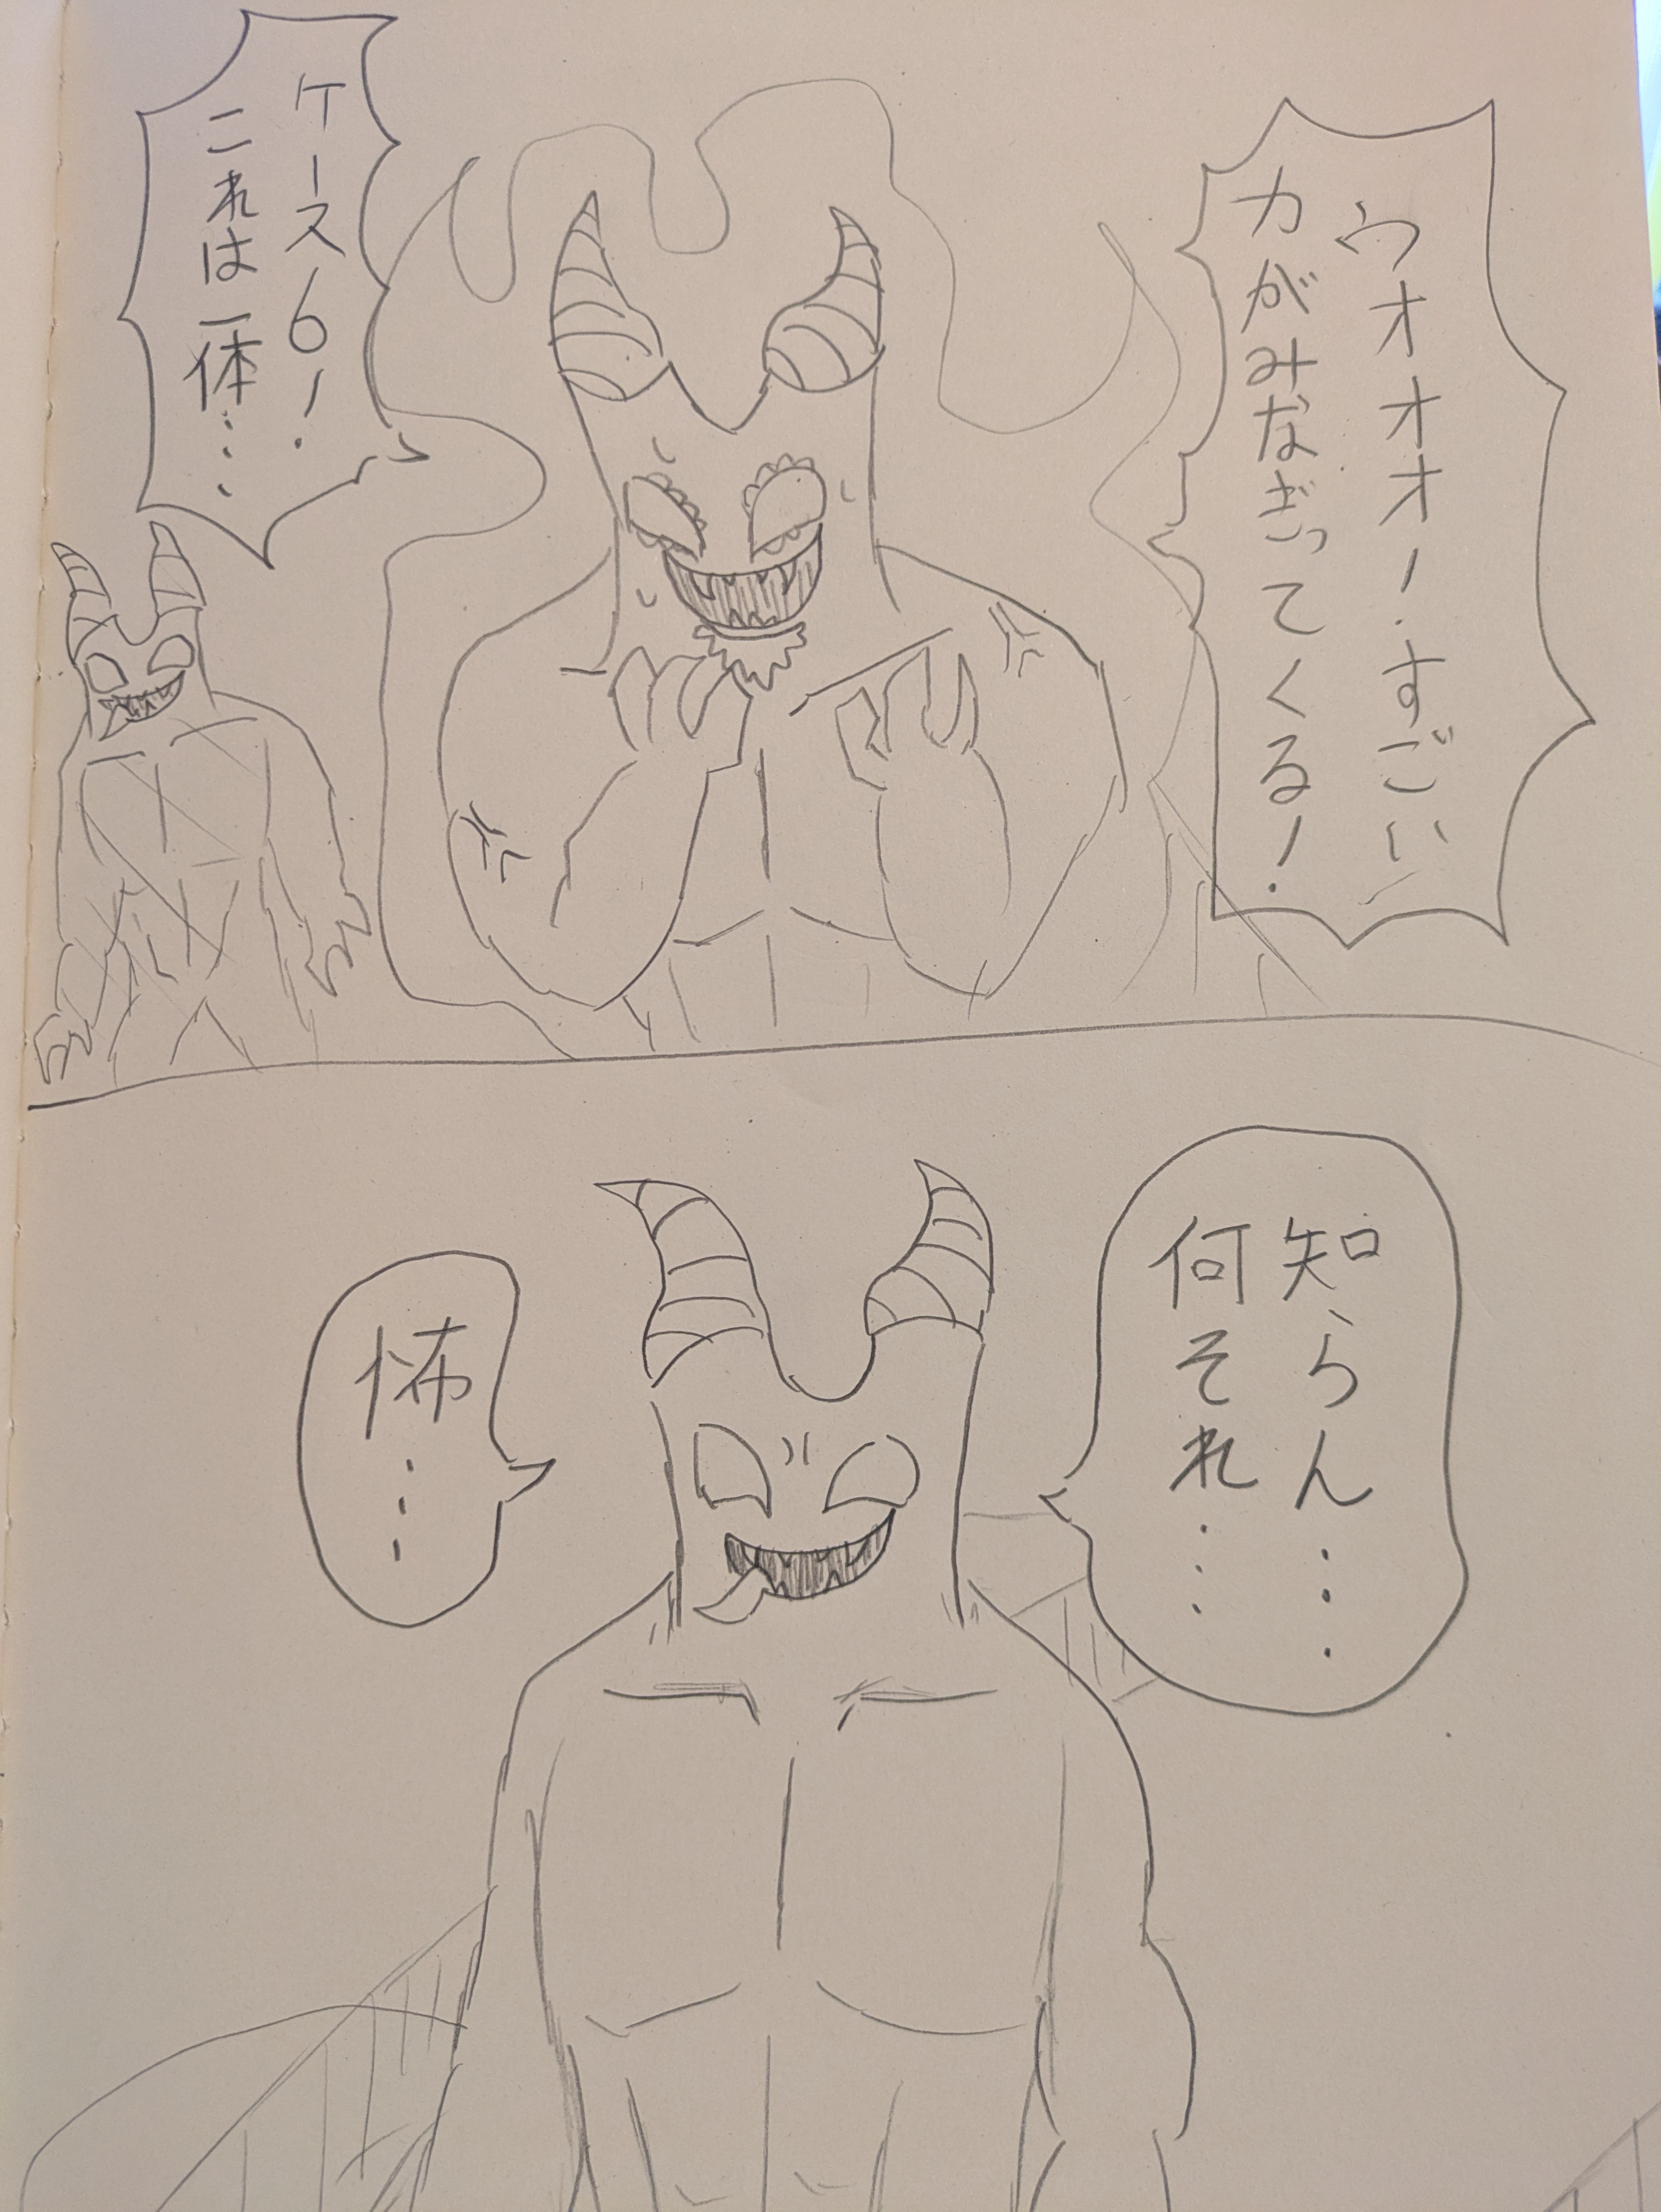 ウオオオ！すごい
力がみなぎってくる！
ケース6！
これは一体…
知らん…
何それ…
怖…